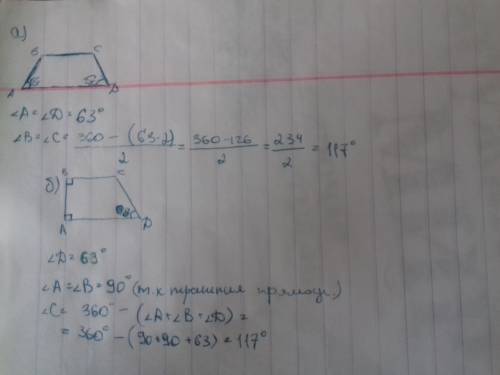 а)
B C
A D
∠A = ∠D = 63°
∠B = ∠C = 360 - (63·2) / 2 = 360-126 / 2 = 234 / 2 = 117°
б)
B C
A D
∠D = 63°
∠A = ∠B = 90° (т.к трапеция прямоуг.)
∠C = 360° - (∠A + ∠B + ∠D) =
= 360° - (90 + 90 + 63) = 117°